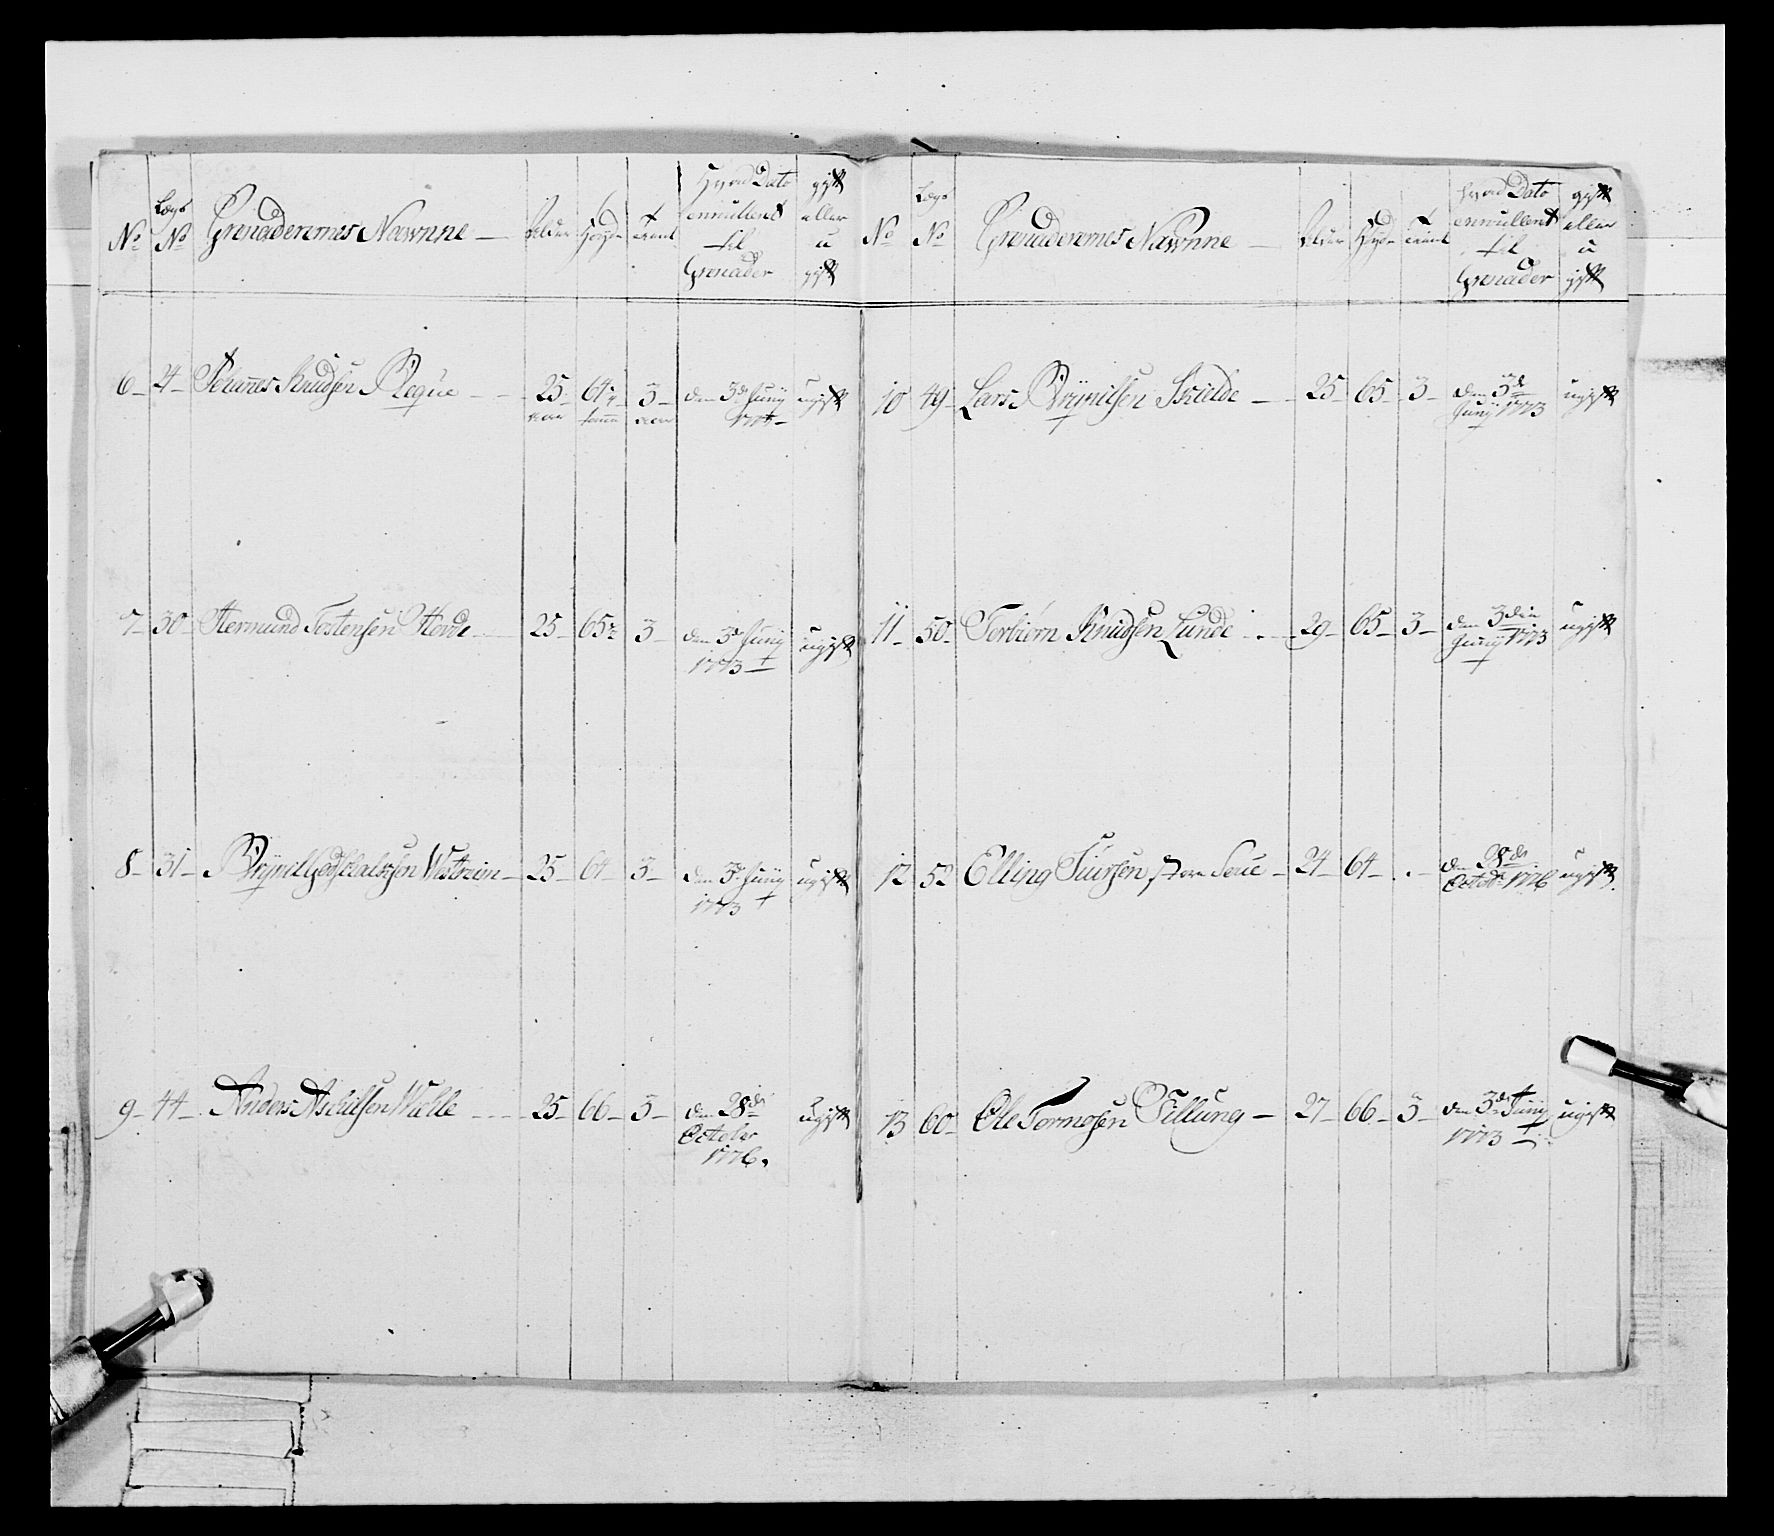 No Lægs No Grenaderernes Nawnne — Alder Høyde Tient Hvad Dato enrulleret til Grenader gift eller u gift
6 – 4 – Johannes Knudsen Reque – – 25 aar 64½ tomme 3 – aar den 3de Junij 177 – ugift
7 – 30 – Hermund Tostensen Horde 25 – 65½ 3 – den 3de Junij 1773 – ugift
8 – 31 – Brynel Godskalcksen Westreim – 25 – 64 – 3 – den 3de Junij 1773 ugift
9 – 44 – Anders Aschilsen Mølle – – 25 – 66 – 3 – den 28de October 1776. ugift
No Lægs No Grenaderernes Nawnne — Alder Høyde Tient Hvad Dato enrulleret til Grenader gift eller u gift
10 49 – Lars Brynilsen Skielde – – 25 – 65 – 3 – den 3de Junij 1773 ugift
11 – 50 – Torbiørn Knudsen Lunde – – 29 – 65 – 3 – den 3die Junij 1773 ugift
12 52 Elling Siursen Store – 24 – 64 – . – den 28de Octobr 1776 ugift
13 60 – Ole Tormosen Fillung – 27 – 66 – 3 – den 3de Junij 1773 – ugift